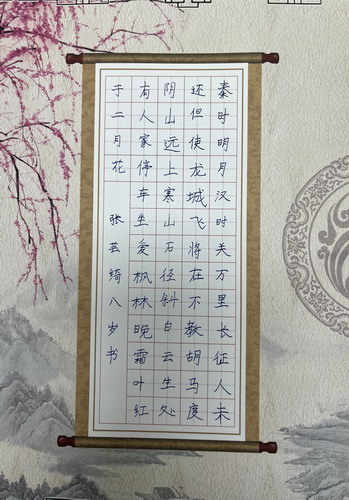 秦时明月汉时关万里长征人未
还但使龙城飞将在不教胡马度
阴山远上寒山石径斜白云生处
有人家停车坐爱枫林晚霜叶红
于二月花
张芸绮八岁书